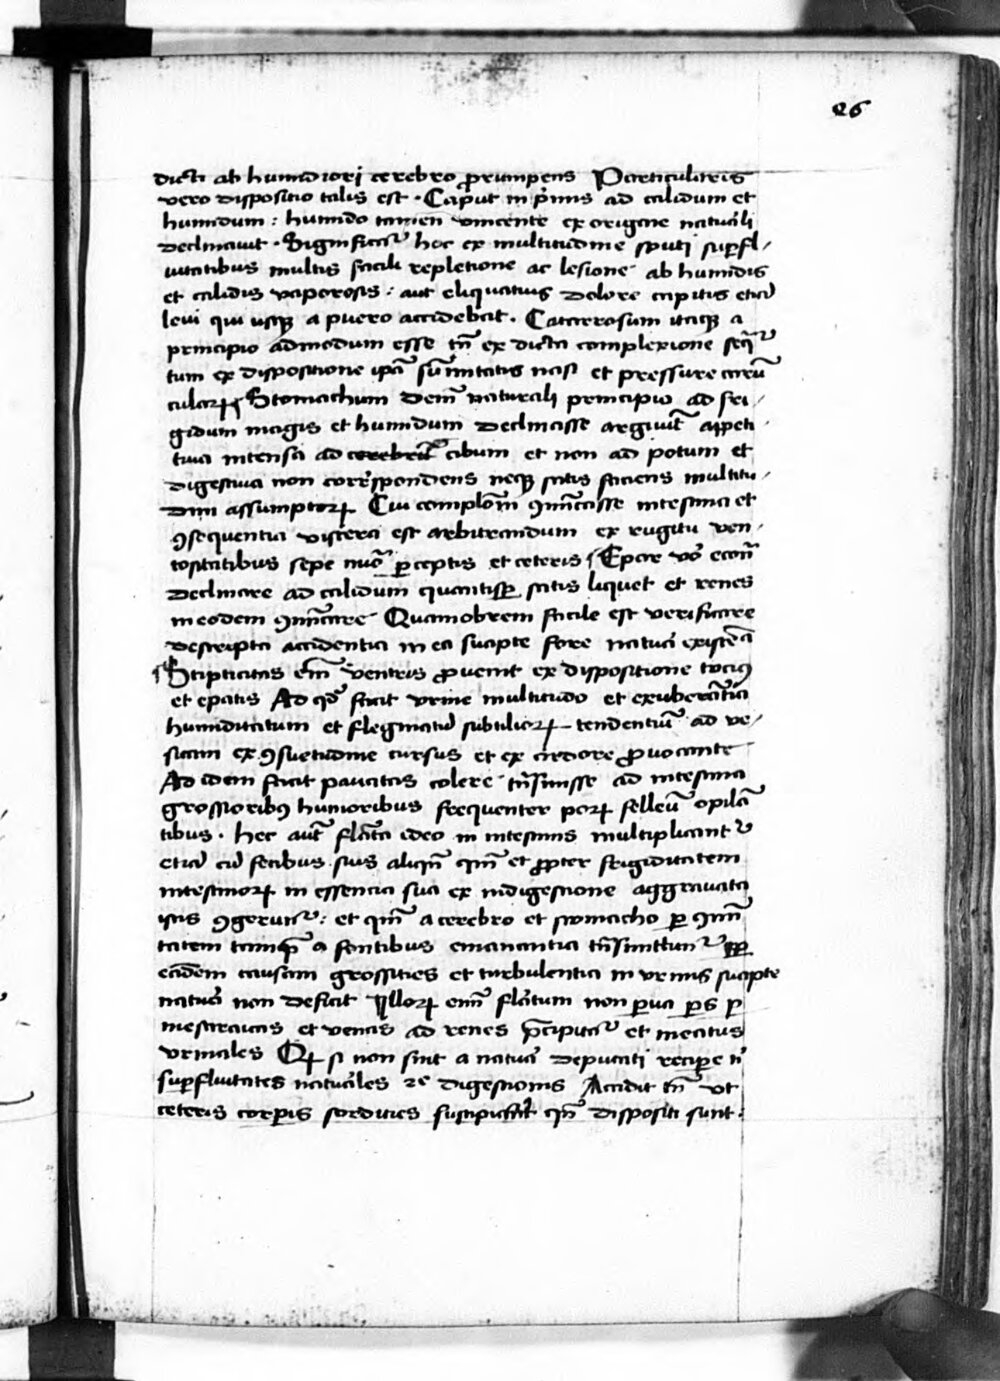 26
dicti ab humidiori cerebro prorumpens Particularis
vero dispositio talis est . Caput in p̾mis ad calidum et
humidum : humido tamen vincente ex origine natu᷑ali
declinauit . Significat᷑ hoc ex multitudine sputi supfl /
uitatibus multis facili repletione ac lesione ab humidis
et calidis vaporosis : aut eliquatiuis dolore capitis etia᷑
leui qui usq̨ a puero accidebat . Catarrosum itaq̨ a
principio admodum esse tn̄ ex dicta complexione seq᷑
tum ex dispositione ip̄a su᷑mitatis nasi et pressure
Stomachum dem̄ naturali principio ad fri /
gidum magis et humidum declinasse arguit appeti /
tiua intensa ad cibum et non ad potum et
digestiua non corr̄spondens neq̨ satis faciens multitu /
dini assumptoꝝ Cui complōm ꝯm̄icasse intestina et
ꝯsequentia viscera est arbitrandum ex rugitu ven /
tositatibus sepe ꝑceptis et ceteris Epar vo᷑ econ̄
declinare ad calidum quantisꝑ satis liquet et renes
in eodem ꝯm̄icare Quamobrem facile est verificare
descripta accidentia in ea suapte fore natu᷑a existe᷑cia
Stipticitas em̄ ventris ꝓuenit ex dispositione
et epatis Ad qd᷑ facit vrine multitudo et exubera᷑tia
humiditatum et flegmatu᷑ subtilioꝝ tendentiu᷑ ad ve /
sicam ex ꝯsuetudine cursus et ex ardore ꝓuocante
Ad idem facit paucitas colere tn̄smisse ad intestina
grossioribꝰ humoribus frequenter poꝝ felleu᷑ opila᷑
tibus . hec aut̄ fla᷑ta ideo in intestinis multiplicant᷑
etia᷑ cu᷑ fecibus suis aliqn̄ qm̄ et ꝓpter frigiditatem
intestinoꝝ in essentia sua ex indigestione aggrauata
istis ꝯgerunt᷑ : et qm̄ a cerebro et stomacho ꝑ ꝯtin̄
tatem tamqꝫ a fontibus emanantia tn̄smittunt᷑ ꝓpꝑ
ea᷑dem causam grossities et turbulentia in vrinis suapte
natu᷑a non deficit Illoꝝ em̄ fla᷑tum non ꝑua ꝑs ꝑ
meseraicas et venas ad renes p᷑cipitat᷑ et meatus
vrinales Qꝝ si non sint a natu᷑a deputati recipe᷑ n᷑
supfluitates natu᷑ales 2e digestionis Accidit tn̄ vt
ceteris corꝑis sordities suscipiant qn̄ dispositi sunt :